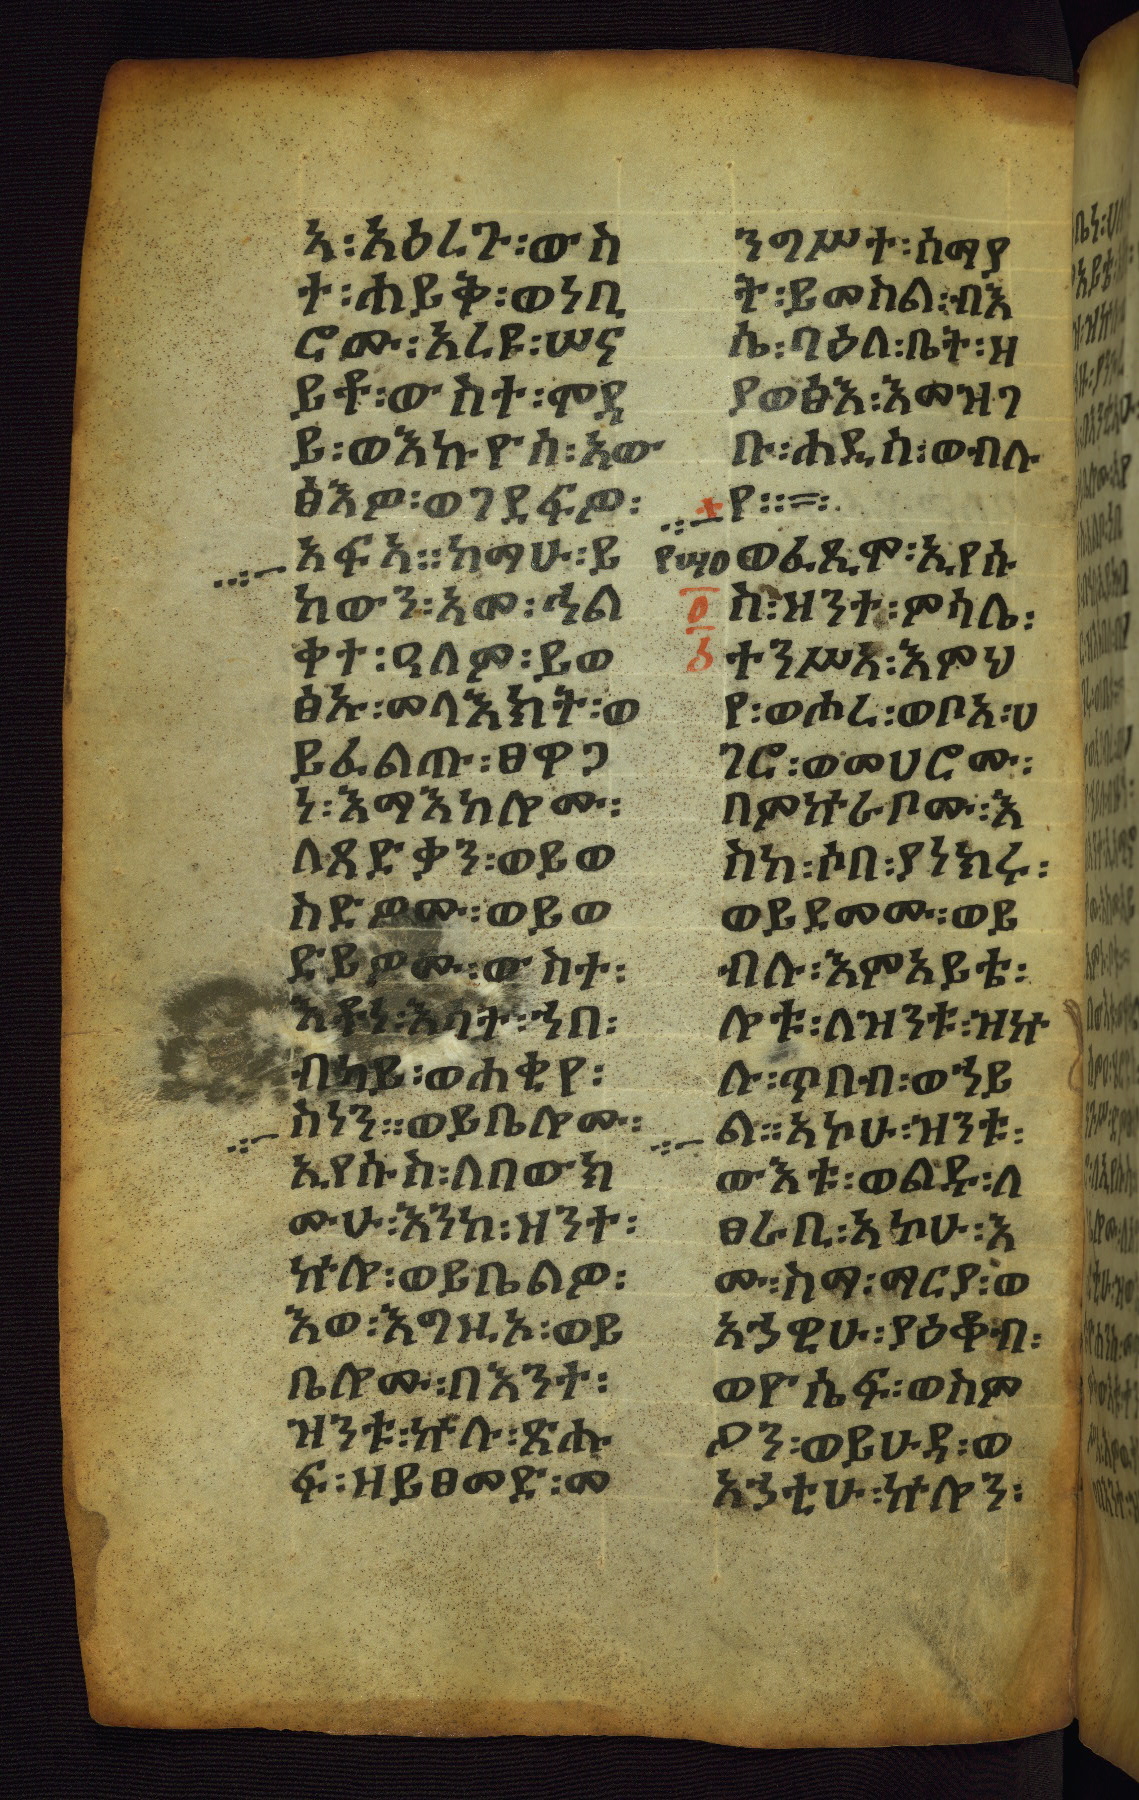 አ፡አዕረጉ፡ውስ
ተ፡ሐይቅ፡ወነቢ
ሮሙ፡አረዩ፡ሠና
ይቶ፡ውስተ፡ሞዳ
ይ፡ወእኩዮሰ፡አው
ፅእዎ፡ወገደፍዎ፡
አፍአ። ከማሁ፡ይ
ከውን፡አመ፡ኅል
ቀተ፡ዓለም፡ይወ
ፅኡ፡መላእክት፡ወ
ይፈልጡ፡ፀዋጋ
ነ፡እማእከሎሙ፡
ለጻድቃን፡ወይወ
ስድዎሙ፡ወይወ
ድይዎሙ፡ውስተ፡
እቶነ፡እሳት፡ኀበ፡
ብካይ፡ወሐቂየ፡
ስነን። ወይቤሎሙ፡
ኢየሱስ፡ለበውክ
ሙሁ፡እንከ፡ዝንተ፡
ኵሎ፡ወይቤልዎ፡
እወ፡እግዚኦ፡ወይ
ቤሎሙ፡በእንተ፡
ዝንቱ፡ኵሉ፡ጸሐ
ፍ፡ዘይፀመድ፡መ
ንግሥተ፡ሰማያ
ት፡ይመስል፡ብእ
ሴ፡ባዕለ፡ቤት፡ዘ
ያወፅእ፡እመዝገ
ቡ፡ሐዲሰ፡ወብሉ
የ፡፡=፡
ወፈጺሞ፡ኢየሱ
የሣዐ
ስ፡ዝንተ፡ምሳሌ፡
ዐ
ተንሥአ፡እምህ
ፊ
የ፡ወሖረ፡ወቦአ፡ሀ
ገሮ፡ወመሀሮሙ፡
በምኵራቦሙ፡እ
ስከ፡ሶበ፡ያነክሩ፡
ወይደመሙ፡ወይ
ብሉ፡እምአይቴ፡
ሎቱ፡ለዝንቱ፡ዝኵ
ሉ፡ጥበብ፡ወኀይ
ል። አኮሁ፡ዝንቱ፡
ውእቱ፡ወልዱ፡ለ
ፀራቢ፡አኮሁ፡እ
ሙ፡ስማ፡ማርያ፡ወ
አኃዊሁ፡ያዕቆብ፡
ወዮሴፍ፡ወስም
ዖን፡ወይሁዳ፡ወ
አኃቲሁ፡ኵሎን፡